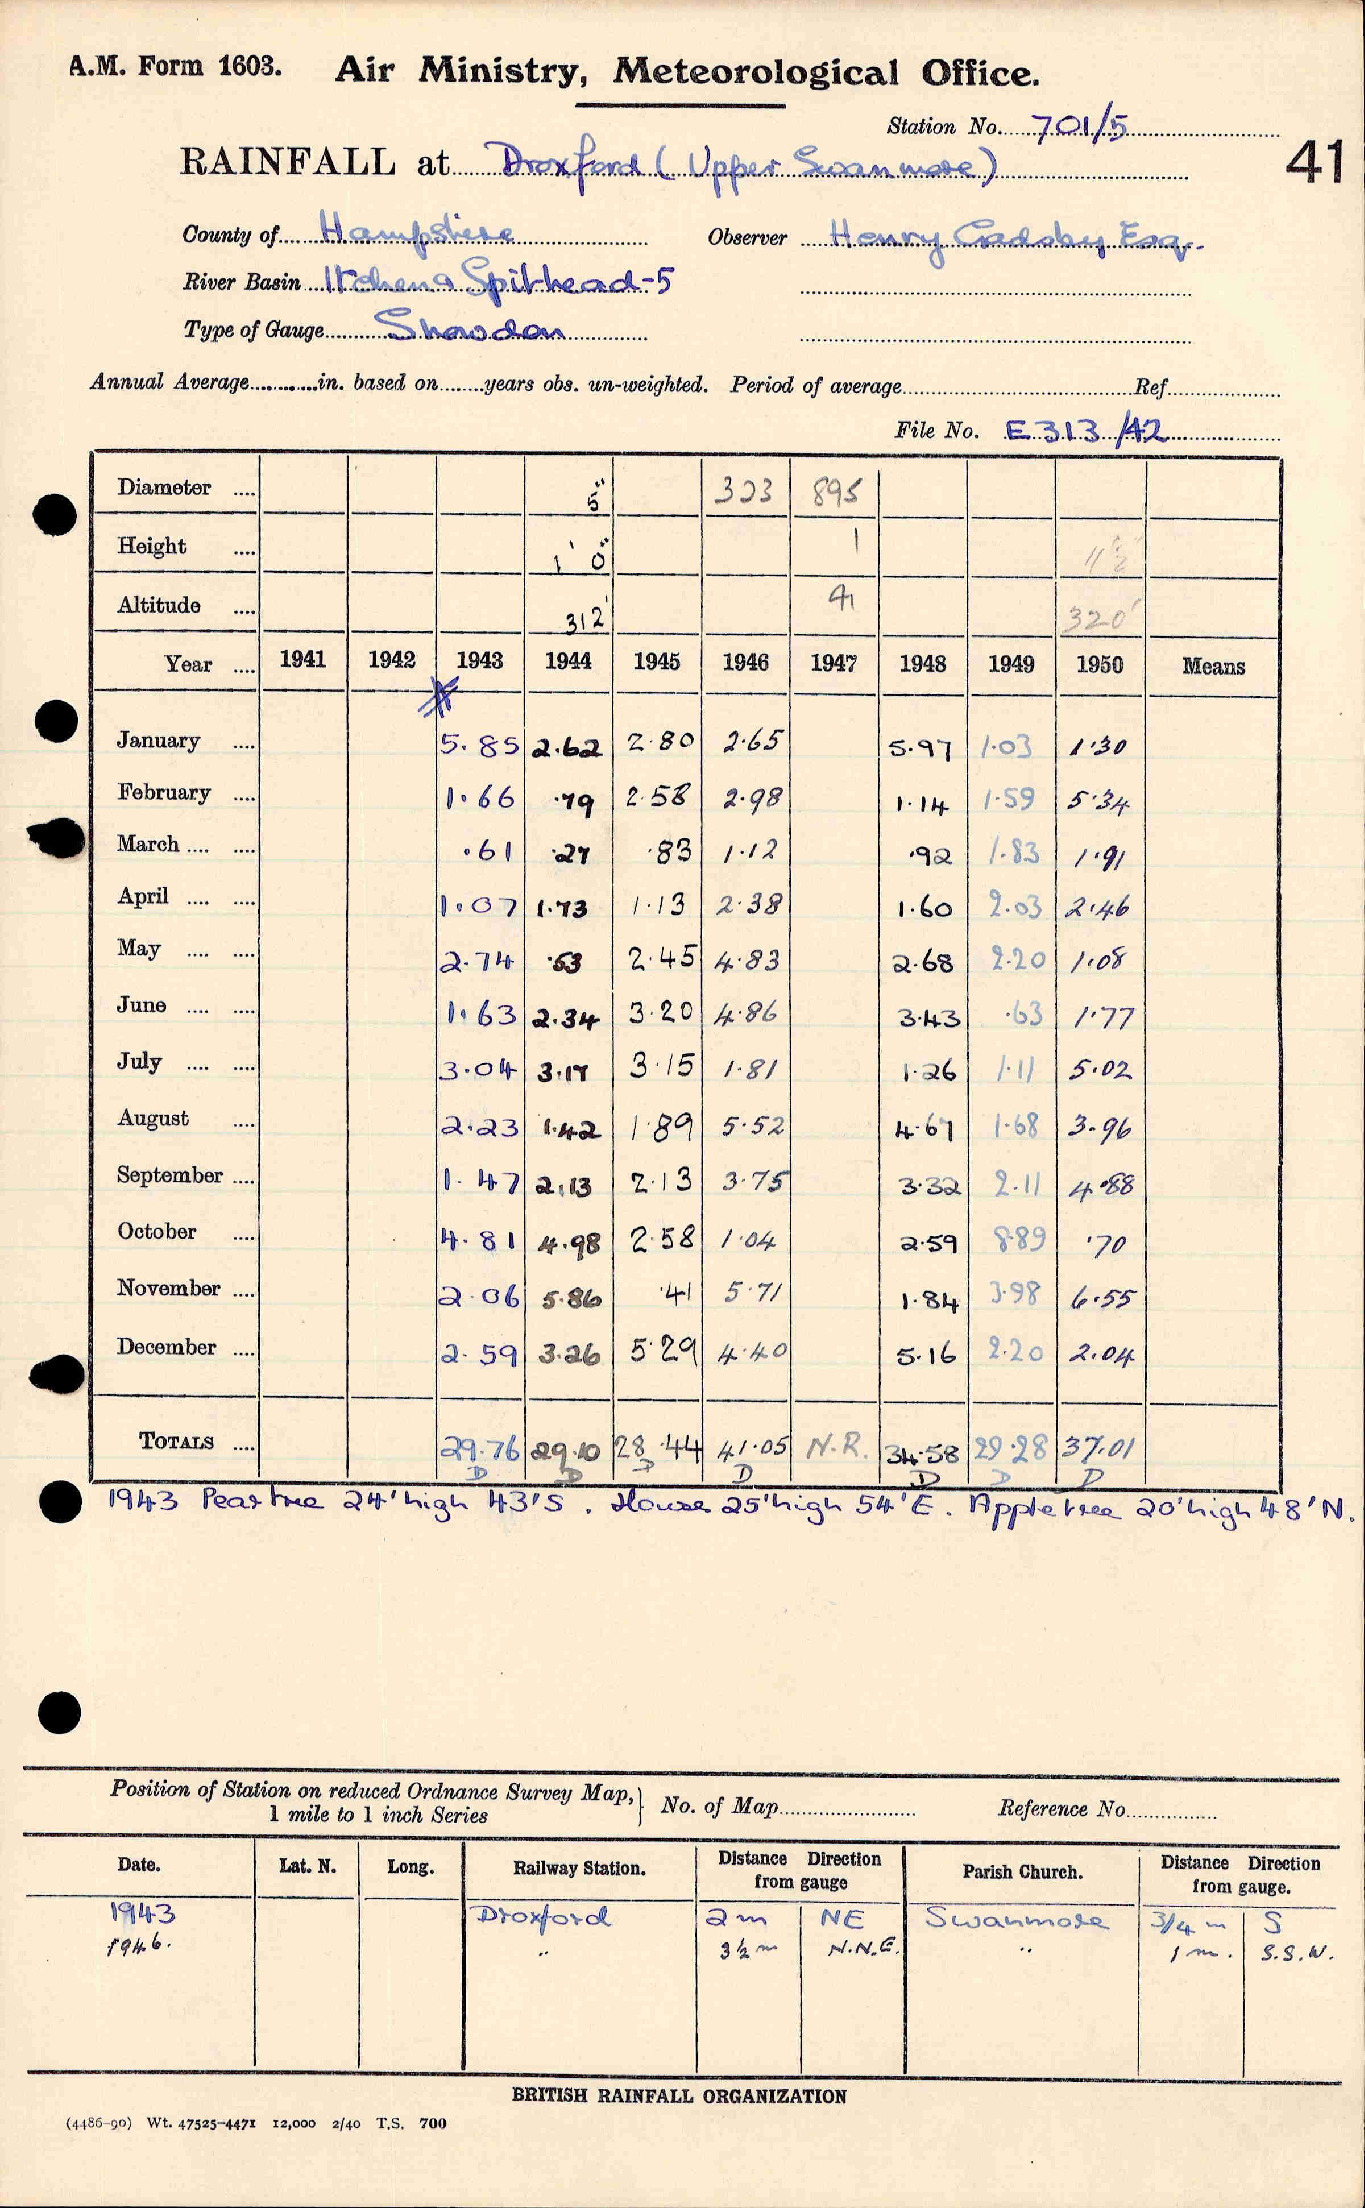 A.M. Form 1603. Air Ministry, Meteorological Office.
Station No. 701/5
RAINFALL at Droxford (Upper Swanmore) 41
County of Hampshire Observer Henry Gadsby Esq.
River Basin Itchen a Spithead-5
Type of Gauge Snowdon
Annual Average............in. based on.......years obs. un-weighted. Period of average.......... Ref..........
File No. E313/42
Diameter .... 5" 323 895
Height .... 1' 0" 1 11½"
Altitude .... 312' 320'
Year .... 1941 1942 1943 1944 1945 1946 1947 1948 1949 1950 Means
January .... 5.85 2.62 2.80 2.65 5.97 1.03 1.30
February .... 1.66 .79 2.58 2.98 1.14 1.59 5.34
March .... .... .61 .27 .83 1.12 .92 1.83 1.91
April .... .... 1.07 1.73 1.13 2.38 1.60 2.03 2.46
May .... .... 2.74 .53 2.45 4.83 2.68 2.20 1.08
June .... .... 1.63 2.34 3.20 4.86 3.43 .63 1.77
July .... .... 3.04 3.17 3.15 1.81 1.26 1.11 5.02
August .... 2.23 1.42 1.89 5.52 4.67 1.68 3.96
September .... 1.47 2.13 2.13 3.75 3.32 2.11 4.88
October .... 4.81 4.98 2.58 1.04 2.59 8.89 .70
November .... 2.06 5.86 .41 5.71 1.84 3.98 6.55
December .... 2.59 3.26 5.29 4.40 5.16 2.20 2.04
TOTALS .... 29.76 29.10 28.44 41.05 N.R. 34.58 29.28 37.01
D D D D D D D
1943 Pear tree 24' high 43'S. House 25' high 54'E. Apple tree 20' high 48'N.
Position of Station on reduced Ordnance Survey Map, 1 mile to 1 inch Series } No. of Map.......... Reference No..........
Date. Lat. N. Long. Railway Station. Distance Direction from gauge Parish Church. Distance Direction from gauge.
1943 Droxford 2 m NE Swanmore 3/4 m S
1946. " 3½ m N.N.E. " 1 m. S.S.W.
BRITISH RAINFALL ORGANIZATION
(4486-90) Wt. 47525-4471 12,000 2/40 T.S. 700